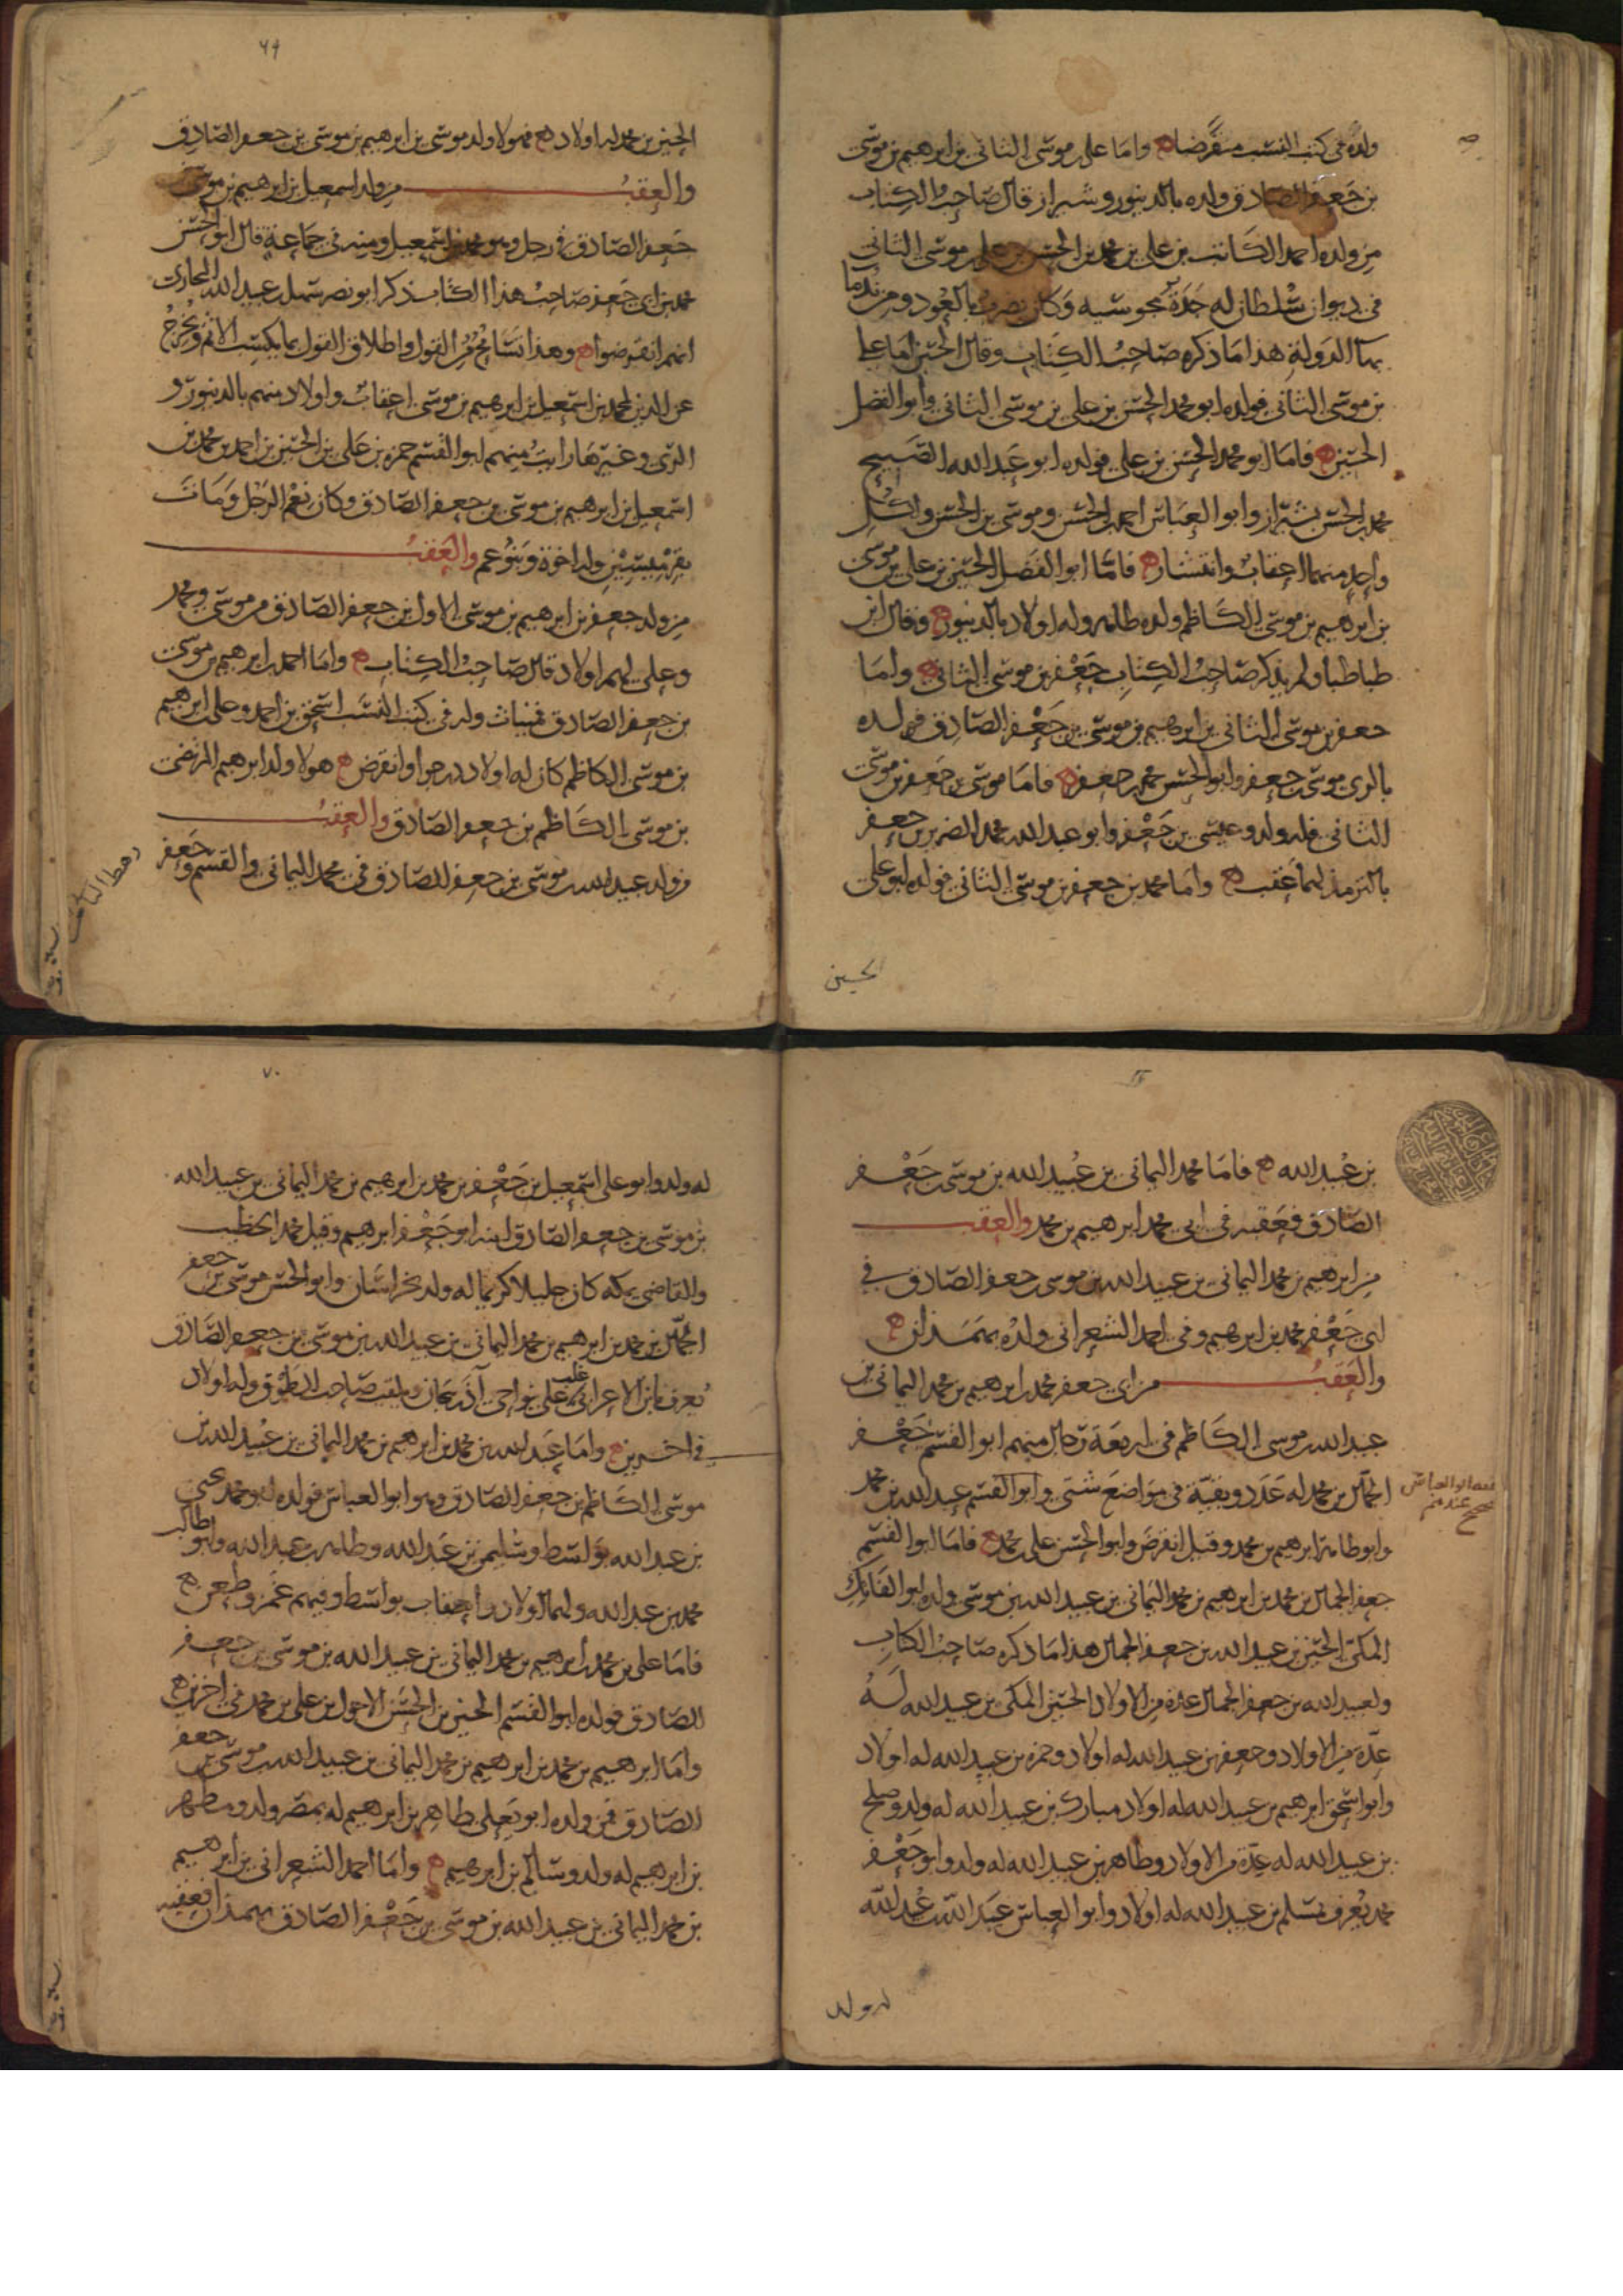 ولده في كتب النسب منقرضا ه واما علي بن موسى الثاني بن ابرهيم بن موسى
بن جعفر الصادق ولده بالدينور وشيراز قال صاحب الكتاب
من ولده احمد الكاتب بن علي بن محمد بن الحسن بن علي بن موسى الثاني
في ديوان سلطان له جدة مجوسيه وكان يضرب بالعود ومن ندما
بهآ الدولة هذا ما ذكره صاحب الكتاب وقال الحسن اما علي
بن موسى الثاني فولده ابو محمد الحسن بن علي بن موسى الثاني وابو الفضل
الحسين ه فاما ابو محمد الحسن بن علي فولده ابو عبد الله الصبيح
محمد بن الحسن بشيراز وابو العباس احمد بن الحسن وموسى بن الحسن ولكل
واحد منهما اعقاب وانتشار ه فاما ابو الفضل الحسين بن علي بن موسى
بن ابرهيم بن موسى الكاظم ولده طاهر وله اولاد بالدينور ه وقال ابن
طباطبا ولم يذكر صاحب الكتاب جعفر بن موسى الثاني ه واما
جعفر بن موسى الثاني بن ابرهيم بن موسى بن جعفر الصادق فولده
بالري موسى بن جعفر وابو الحسن محمد بن جعفر ه فاما موسى بن جعفر بن موسى
الثاني فله ولد وعيسى بن جعفر وابو عبد الله محمد الضرير بن جعفر
بالترمذ لهما عقب ه واما محمد بن جعفر بن موسى الثاني فولده ابو علي
الحسين
٦٩
الحسين بن محمد له اولاد ه فهولا ولد موسى بن ابرهيم بن موسى بن جعفر الصادق
والعقب من ولد اسمعيل بن ابرهيم بن موسى
جعفر الصادق في رجل وهو محمد بن اسمعيل ومنه في جماعة قال ابو الحسن
محمد بن ابي جعفر صاحب هذا الكتاب ذكر ابو نصر سهل بن عبد الله البخاري
انهم انقرضوا ه وهذا تسامح من القول واطلاق القول بما يكسب الاثم ويخرج
عن الدين لمحمد بن اسمعيل بن ابرهيم بن موسى اعقاب واولاد منهم بالدينور و
الري وغيرها رايت منهم ابو القسم حمزه بن علي بن الحسين بن احمد بن محمد بن
اسمعيل بن ابرهيم بن موسى بن جعفر الصادق وكان نعم الرجل ومات
بقرميسين وله اخوة وبنو عم والعقب
من ولد جعفر بن ابرهيم بن موسى الاول بن جعفر الصادق من موسى ومحمد
وعلي لهم اولاد قال صاحب الكتاب ه واما احمد بن ابرهيم بن موسى
بن جعفر الصادق فميناث وله في كتب النسب اسحق بن احمد وعلي بن ابرهيم
بن موسى الكاظم كان له اولاد درجوا وانقرض ه هولا ولد ابرهيم المرتضى
بن موسى الكاظم بن جعفر الصادق والعقب
من ولد عبيد الله بن موسى بن جعفر الصادق في محمد اليماني والقسم وجعفر
بن عبيد الله ه فاما محمد اليماني بن عبيد الله بن موسى بن جعفر
الصادق فعقبه في ابي محمد ابرهيم بن محمد والعقب
من ابرهيم بن محمد اليماني بن عبيد الله بن موسى جعفر الصادق في
ابي جعفر محمد بن ابرهيم وفي احمد الشعراني ولده بهمذان ه
والعقب من ابي جعفر محمد بن ابرهيم بن محمد اليماني بن
عبيد الله بن موسى الكاظم في اربعة رجال منهم ابو القسم جعفر
الجمال بن محمد له عدد وبقية في مواضع شتى وابو القسم عبد الله بن محمد
وابو طاهر ابرهيم بن محمد وقيل انقرض وابو الحسن علي بن محمد ه فاما ابو القسم
جعفر الجمال بن محمد بن ابرهيم بن محمد اليماني بن عبيد الله بن موسى ولده ابو الفاتك
المكي الحسين بن عبيد الله بن جعفر الجمال هذا ما ذكره صاحب الكتاب
ولعبيد الله بن جعفر الجمال عدة من الاولاد الحسين المكي بن عبيد الله له
عدة من الاولاد وجعفر بن عبيد الله له اولاد وحمزه بن عبيد الله له اولاد
وابو اسحق ابرهيم بن عبيد الله له اولاد مبارك بن عبيد الله له ولد وصلح
بن عبيد الله له عدة من الاولاد وطاهر بن عبيد الله له ولد وابو جعفر
محمد يعرف بمسلم بن عبيد الله له اولاد وابو العباس عبد الله بن عبيد الله
له ولد
٧٠
له ولد وابو علي اسمعيل بن جعفر بن محمد بن ابرهيم بن محمد اليماني بن عبيد الله
بن موسى بن جعفر الصادق ابنه ابو جعفر ابرهيم وقيل محمد الخطيب
والقاضي بمكه كان جليلا كريما له ولد بخراسان وابو الحسن موسى بن جعفر
الجمال بن محمد بن ابرهيم بن محمد اليماني بن عبيد الله بن موسى بن جعفر الصادق
يعرف بابن الاعرابي غلب على نواحي آذربيجان ويلقب صاحب الطوق وله اولاد
في اخرين ه واما عبد الله بن محمد بن ابرهيم بن محمد اليماني بن عبيد الله بن
موسى الكاظم بن جعفر الصادق وهو ابو العباس فولده ابو محمد يحيى
بن عبد الله بواسط وسليمن بن عبد الله وطاهر بن عبد الله وابو طالب
محمد بن عبد الله ولهما اولاد واعقاب بواسط وفيهم غمز وطعن ه
فاما علي بن محمد بن ابرهيم بن محمد اليماني بن عبيد الله بن موسى بن جعفر
الصادق فولده ابو القسم الحسين بن الحسن الاحول بن علي بن محمد في اخرين ه
واما ابرهيم بن محمد بن ابرهيم بن محمد اليماني بن عبيد الله بن موسى بن جعفر
الصادق فمن ولده ابو يعلى طاهر بن ابرهيم له بمصر ولد ومطهر
بن ابرهيم له ولد وسالم بن ابرهيم ه واما احمد الشعراني بن ابرهيم
بن محمد اليماني بن عبيد الله بن موسى بن جعفر الصادق بهمذان فعقبه